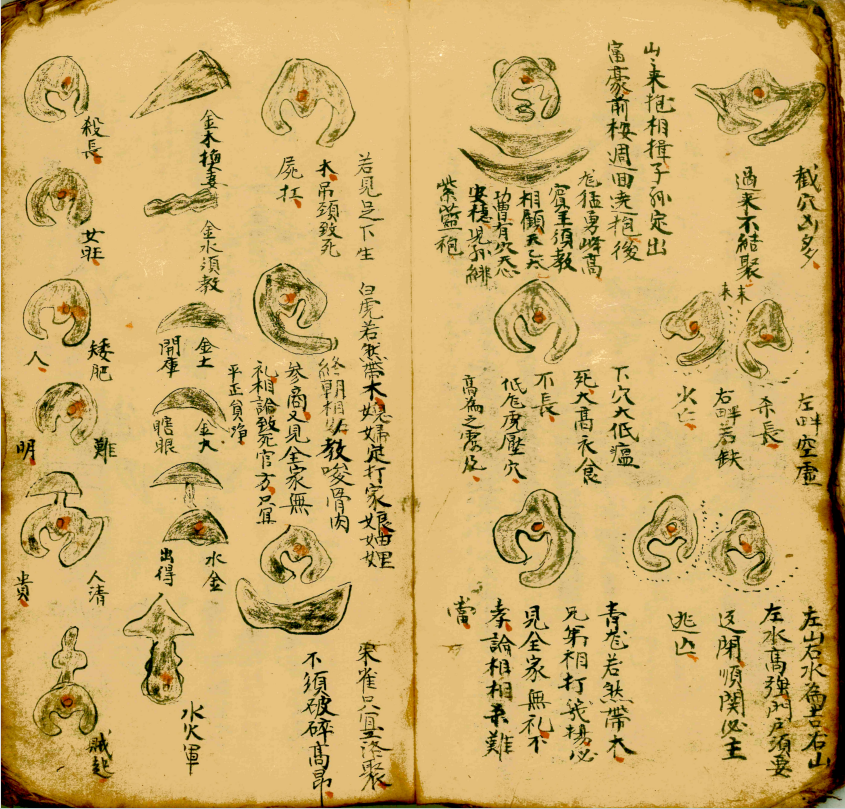 截穴凶多
過來不結聚
山來抱相揖子孫定出
富豪前桉週回遶抱後
龍猛勇峰高
賓主須教
相顧
有穴
安穩兒孫緋
紫藍袍
左畔空虛
殺長
右畔若缺
火亡
來來
下穴大低瘟
死大高衣食
不長
低危虎壓穴
高為之
左山右水為吉右山
左水高強門戶須要
返閉順關必主
逃亡
青龍若然帶木
兄弟相打必
見全家無礼不
孝論相相
難
當
若見足下生
木吊頸致死
屍扛
金木換妻
金水須教
殺長
女旺
矮肥
人
難
明
人清
貴
賊起
白虎若然帶木媳婦定打家娘
終朝相教唆骨肉
參商又見全家無
礼相論致死官方只算
平正貧
金土
開庫
金火
瞎眼
水金
出得
水火軍
朱雀只宜落聚
不須破碎高昂